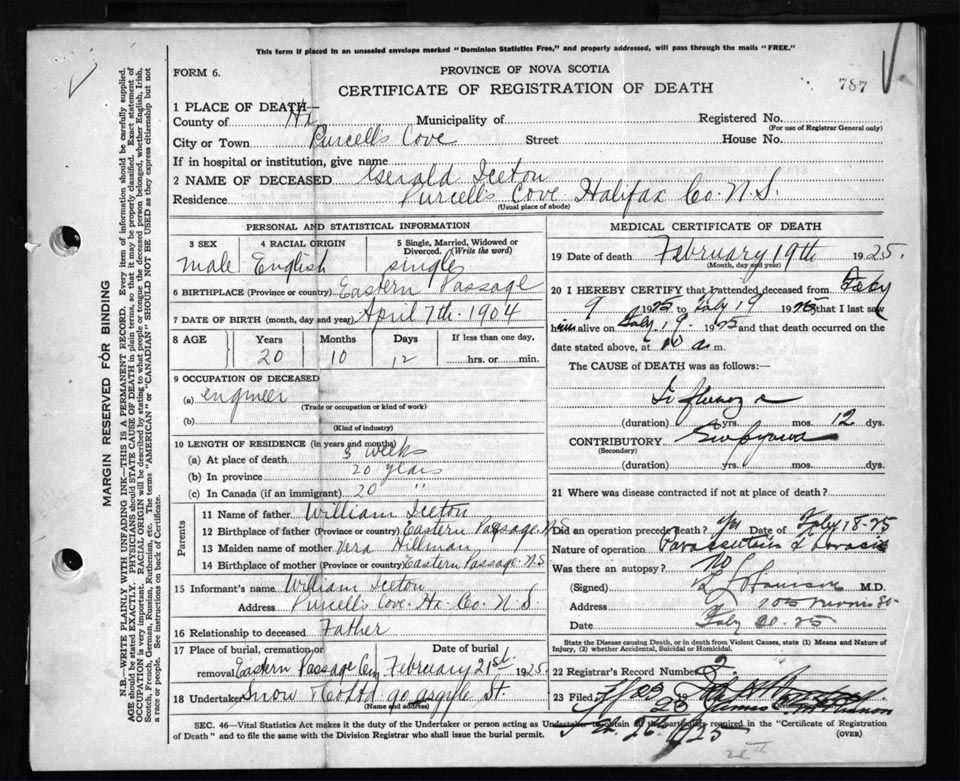 This form if placed in an unsealed envelope marked "Dominion Statistics Free," and properly addressed, will pass through the mails "FREE."
FORM 6.
PROVINCE OF NOVA SCOTIA
787
CERTIFICATE OF REGISTRATION OF DEATH
1 PLACE OF DEATH—
County of Hx Municipality of Registered No.
(For use of Registrar General only)
City or Town Purcell's Cove Street House No.
If in hospital or institution, give name
2 NAME OF DECEASED Gerald Iceton
Residence Purcell's Cove Halifax Co. N.S.
(Usual place of abode)
PERSONAL AND STATISTICAL INFORMATION
3 SEX 4 RACIAL ORIGIN 5 Single, Married, Widowed or Divorced. (Write the word)
male English single
6 BIRTHPLACE (Province or country) Eastern Passage
7 DATE OF BIRTH (month, day and year) April 7th. 1904
8 AGE Years Months Days If less than one day,
20 10 12 hrs. or min.
9 OCCUPATION OF DECEASED
(a) engineer
(Trade or occupation or kind of work)
(b)
(Kind of industry)
10 LENGTH OF RESIDENCE (in years and months)
(a) At place of death 3 weeks
(b) In province 20 years
(c) In Canada (if an immigrant) 20 "
Parents
11 Name of father William Iceton
12 Birthplace of father (Province or country) Eastern Passage N.S
13 Maiden name of mother Vera Hillman
14 Birthplace of mother (Province or country) Eastern Passage N.S
15 Informant's name William Iceton
Address Purcell's Cove. Hx. Co. N.S.
16 Relationship to deceased Father
17 Place of burial, cremation or Date of burial
removal Eastern Passage Cem February 21st. 1925
18 Undertaker Snow & Co Ltd 90 Argyle St.
(Name and address)
MEDICAL CERTIFICATE OF DEATH
19 Date of death February 19th 1925.
(Month, day and year)
20 I HEREBY CERTIFY that I attended deceased from Feby
9 1925 to Feby 19 1925 that I last saw
him alive on Feby 19 1925 and that death occurred on
date stated above, at 10 a m.
The CAUSE of DEATH was as follows:—
Influenza
(duration) yrs. mos. 12 dys.
CONTRIBUTORY Empyema
(Secondary)
(duration) yrs. mos. dys.
21 Where was disease contracted if not at place of death?
Did an operation precede death? Yes Date of Feby 18-25
Nature of operation
Was there an autopsy? No
(Signed) M.D.
Address
Date Feby 20. 25
State the Disease causing Death, or in death from Violent Causes, state (1) Means and Nature of Injury, (2) whether Accidental, Suicidal or Homicidal.
22 Registrar's Record Number 2
23 Filed
Feb. 26 1925
SEC. 46—Vital Statistics Act makes it the duty of the Undertaker or person acting as Undertaker to obtain all the particulars required in the "Certificate of Registration
of Death" and to file the same with the Division Registrar who shall issue the burial permit. (OVER)
MARGIN RESERVED FOR BINDING
N.B.—WRITE PLAINLY WITH UNFADING INK—THIS IS A PERMANENT RECORD. Every item of information should be carefully supplied.
AGE should be stated EXACTLY. PHYSICIANS should STATE CAUSE OF DEATH in plain terms, so that it may be properly classified. Exact statement of
OCCUPATION is very important. RACIAL ORIGIN will be described by stating to what people or tongue the deceased person belonged, whether English, Irish,
Scotch, French, German, Russian, Ruthenian, etc. The terms "AMERICAN" or "CANADIAN" SHOULD NOT BE USED as they express citizenship but not
a race or people. See instructions on back of Certificate.